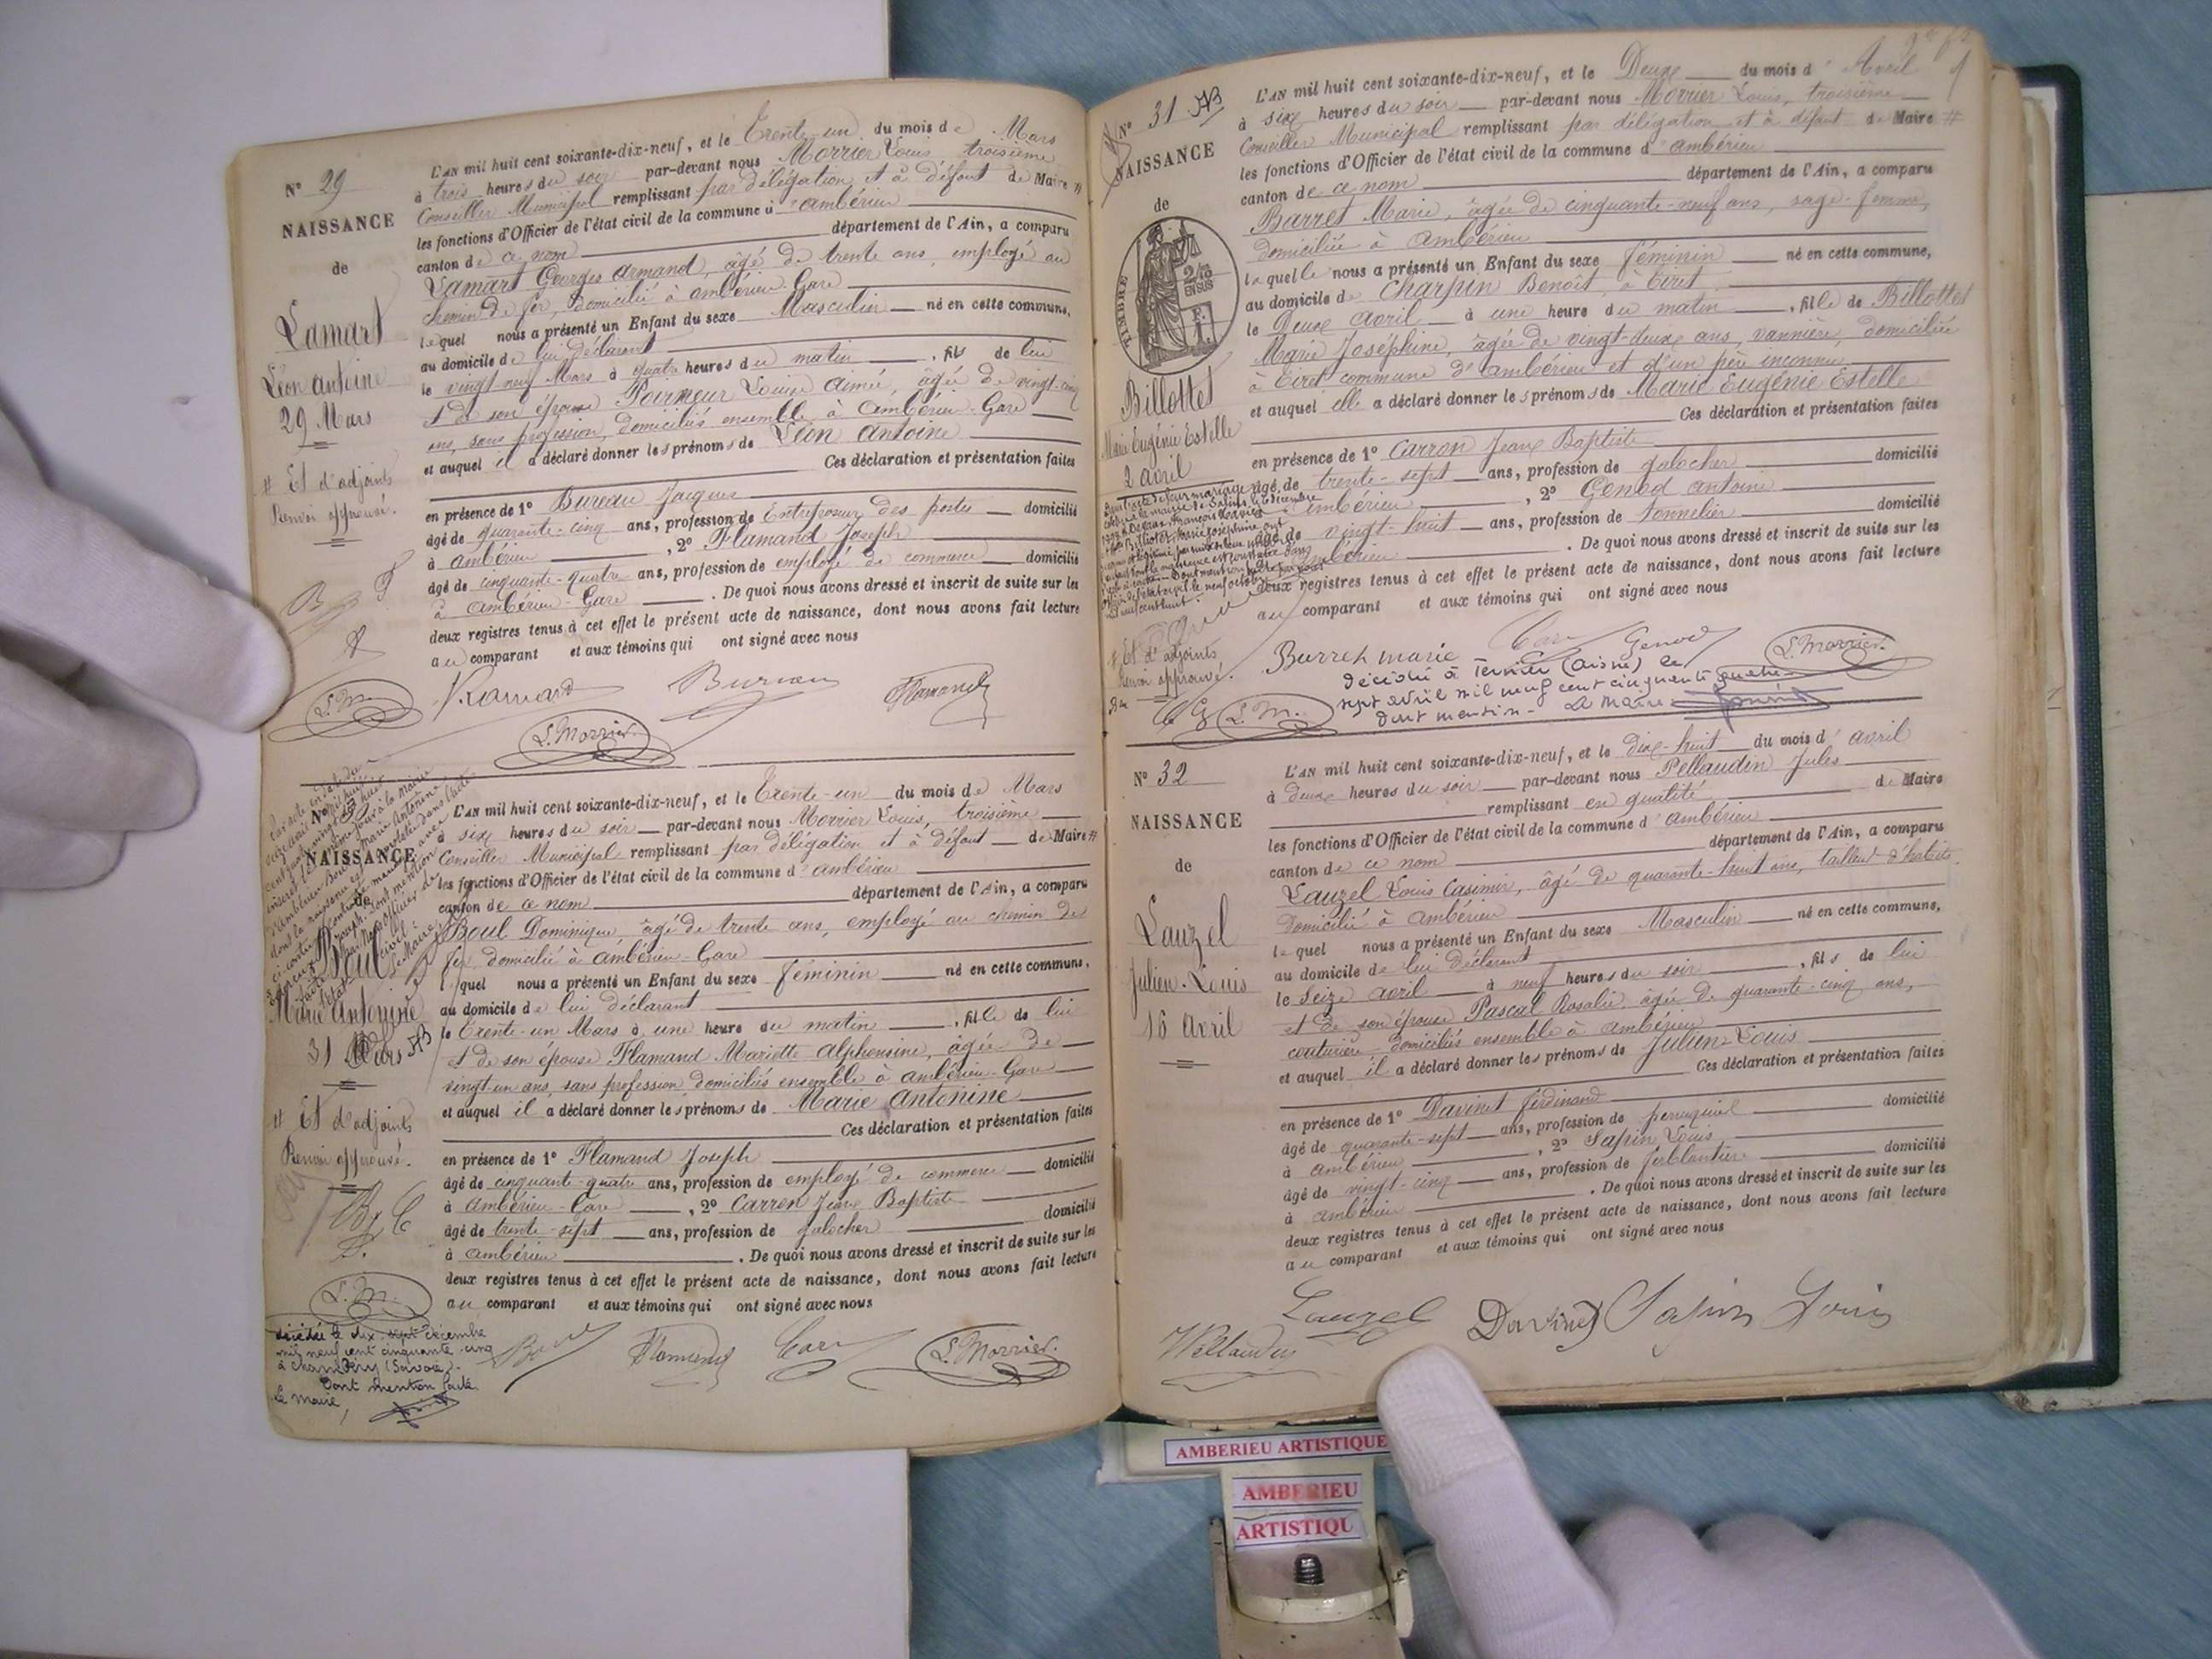 N° 29
NAISSANCE
de
Lamart
Léon Antoine
29 Mars
# Et d'adjoints
Renvoi approuvé.
L'AN mil huit cent soixante-dix-neuf, et le Trente-un du mois de Mars
à trois heures du soir par-devant nous Morrier Louis, troisième
Conseiller Municipal remplissant par délégation et à défaut de Maire #
les fonctions d'Officier de l'état civil de la commune d'Ambérieu
canton de ce nom département de l'Ain, a comparu
Lamart Georges Armand, âgé de trente ans, employé au
chemin de fer, domicilié à Ambérieu-Gare
lequel nous a présenté un Enfant du sexe Masculin né en cette commune,
au domicile de lui déclarant
le vingt-neuf Mars à quatre heures du matin, fils de lui
et de son épouse Poirmeur Louise Aimée, âgée de vingt-cinq
ans, sans profession, domiciliés ensemble à Ambérieu-Gare
et auquel il a déclaré donner les prénoms de Léon Antoine
Ces déclaration et présentation faites
en présence de 1° Bureau Jacques
âgé de quarante-cinq ans, profession de Entreposeur des postes domicilié
à Ambérieu, 2° Flamand Joseph
âgé de cinquante-quatre ans, profession de employé de commerce domicilié
à Ambérieu-Gare. De quoi nous avons dressé et inscrit de suite sur les
deux registres tenus à cet effet le présent acte de naissance, dont nous avons fait lecture
au comparant et aux témoins qui ont signé avec nous
L.M. Bureau Flamand
L. Morrier
NAISSANCE
Boul
Marie Antonine
31 Mars
# Et d'adjoints
Renvoi approuvé.
L.M.
décédée le dix-sept décembre
mil neuf cent cinquante-cinq
à Chambéry (Savoie).
Dont mention faite
Le Maire,
L'AN mil huit cent soixante-dix-neuf, et le Trente-un du mois de Mars
à six heures du soir par-devant nous Morrier Louis, troisième
Conseiller Municipal remplissant par délégation et à défaut de Maire #
les fonctions d'Officier de l'état civil de la commune d'Ambérieu
canton de ce nom département de l'Ain, a comparu
Boul Dominique, âgé de trente ans, employé au chemin de
fer, domicilié à Ambérieu-Gare
lequel nous a présenté un Enfant du sexe féminin né en cette commune,
au domicile de lui déclarant
le Trente-un Mars à une heure du matin, fille de lui
et de son épouse Flamand Mariette Alphonsine, âgée de
vingt-un ans, sans profession, domiciliés ensemble à Ambérieu-Gare
et auquel il a déclaré donner les prénoms de Marie Antonine
Ces déclaration et présentation faites
en présence de 1° Flamand Joseph
âgé de cinquante-quatre ans, profession de employé de commerce domicilié
à Ambérieu-Gare, 2° Carron Jean Baptiste
âgé de trente-sept ans, profession de galocher domicilié
à Ambérieu. De quoi nous avons dressé et inscrit de suite sur les
deux registres tenus à cet effet le présent acte de naissance, dont nous avons fait lecture
au comparant et aux témoins qui ont signé avec nous
Boul Flamand Carr L. Morrier
N° 31
NAISSANCE
de
TIMBRE
2/10
EN SUS
Billottet
Marie Eugénie Estelle
2 avril
# Et d'adjoints
Renvoi approuvé.
L.M.
L'AN mil huit cent soixante-dix-neuf, et le Deux du mois d'Avril
à six heures du soir par-devant nous Morrier Louis, troisième
Conseiller Municipal remplissant par délégation et à défaut de Maire #
les fonctions d'Officier de l'état civil de la commune d'Ambérieu
canton de ce nom département de l'Ain, a comparu
Barret Marie, âgée de cinquante-neuf ans, sage-femme,
domiciliée à Ambérieu
laquelle nous a présenté un Enfant du sexe féminin né en cette commune,
au domicile de Charpin Benoît, à Tiret
le Deux Avril à une heure du matin, fille de Billottet
Marie Joséphine, âgée de vingt-deux ans, vannière, domiciliée
à Tiret commune d'Ambérieu et d'un père inconnu
et auquel elle a déclaré donner les prénoms de Marie Eugénie Estelle
Ces déclaration et présentation faites
en présence de 1° Carron Jean Baptiste
âgé de trente-sept ans, profession de galocher domicilié
Ambérieu, 2° Genod Antoine
âgé de vingt-huit ans, profession de tonnelier domicilié
Ambérieu. De quoi nous avons dressé et inscrit de suite sur les
deux registres tenus à cet effet le présent acte de naissance, dont nous avons fait lecture
au comparant et aux témoins qui ont signé avec nous
Barreh marie Carr Genod L. Morrier
décédée à Ternier (Aisne) le
sept avril mil neuf cent cinquante quatre
dont mention - Le Maire
N° 32
NAISSANCE
de
Lauzel
Julien-Louis
16 Avril
L'AN mil huit cent soixante-dix-neuf, et le dix-huit du mois d'avril
à deux heures du soir par-devant nous Pellaudin Jules
remplissant en qualité de Maire
les fonctions d'Officier de l'état civil de la commune d'Ambérieu
canton de ce nom département de l'Ain, a comparu
Lauzel Louis Casimir, âgé de quarante-huit ans, tailleur d'habits
domicilié à Ambérieu
lequel nous a présenté un Enfant du sexe Masculin né en cette commune,
au domicile de lui déclarant
le Seize avril à neuf heures du soir, fils de lui
et de son épouse Pascal Rosalie, âgée de quarante-cinq ans,
couturière, domiciliés ensemble à Ambérieu
et auquel il a déclaré donner les prénoms de Julien-Louis
Ces déclaration et présentation faites
en présence de 1° Davinet Ferdinand
âgé de quarante-sept ans, profession de perruquier domicilié
à Ambérieu, 2° Sapin Louis
âgé de vingt-cinq ans, profession de ferblantier domicilié
à Ambérieu. De quoi nous avons dressé et inscrit de suite sur les
deux registres tenus à cet effet le présent acte de naissance, dont nous avons fait lecture
au comparant et aux témoins qui ont signé avec nous
Lauzel Davinet Sapin Louis
Pellaudin
AMBERIEU ARTISTIQUE
AMBERIEU
ARTISTIQU